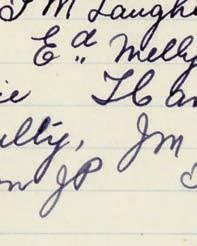 J M Laugh
Ed. Melly
ie Han
ulty, JM
on JP